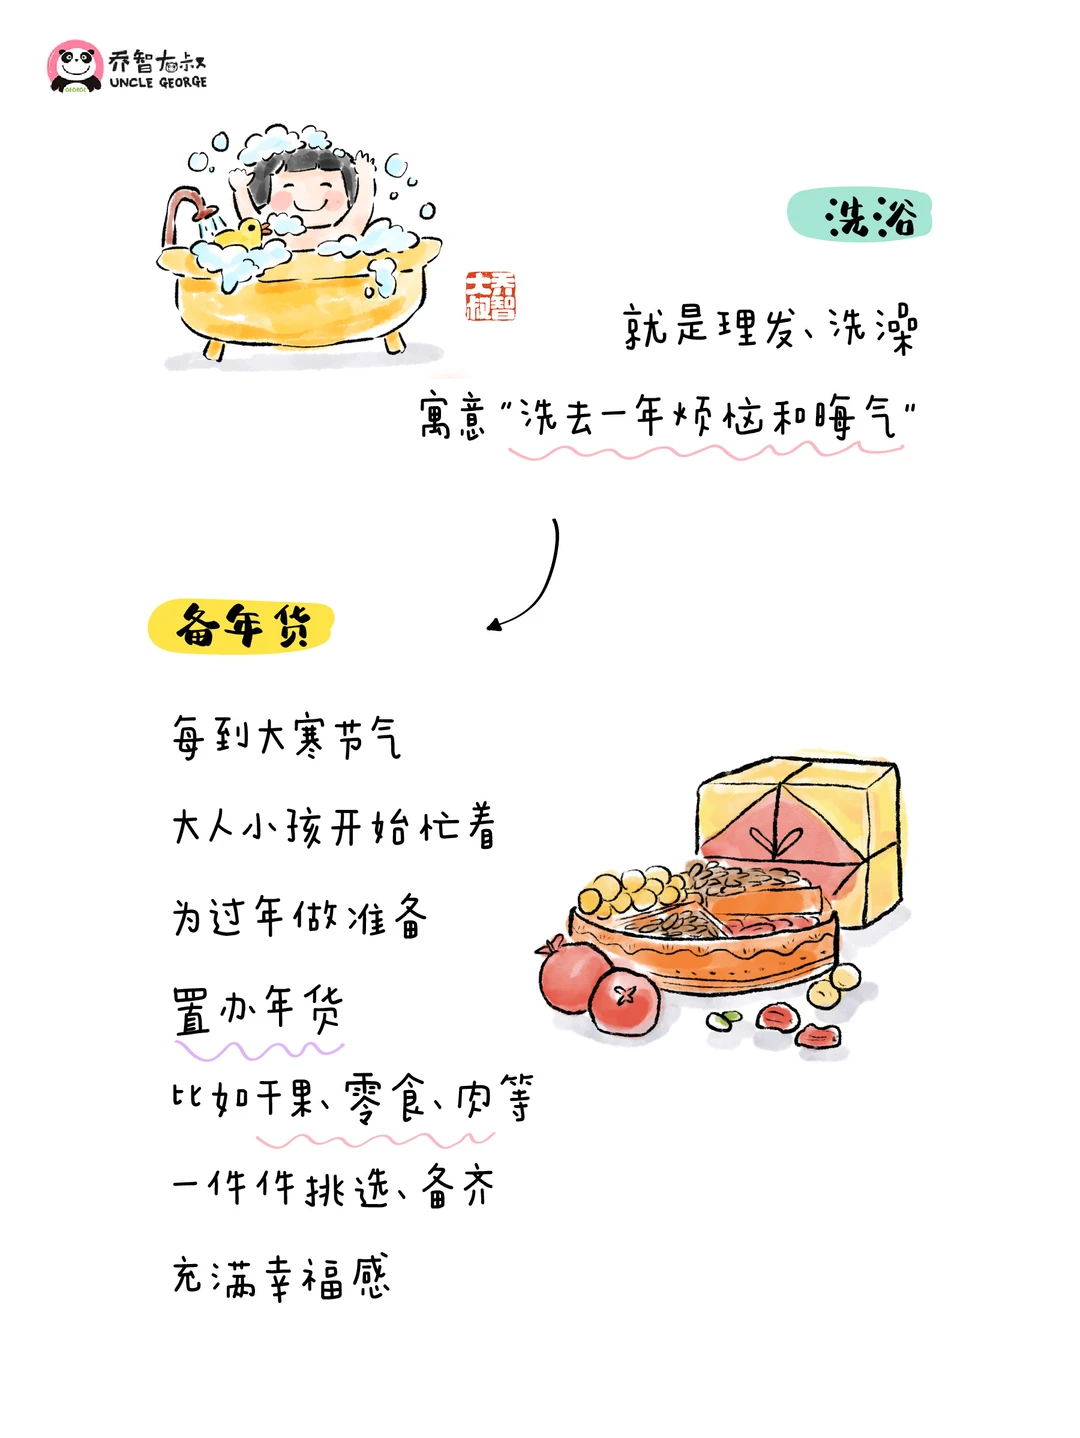 乔智大叔
UNCLE GEORGE
GEORGE
洗浴
乔智
大叔
就是理发、洗澡
寓意“洗去一年烦恼和晦气”
备年货
每到大寒节气
大人小孩开始忙着
为过年做准备
置办年货
比如干果、零食、肉等
一件件挑选、备齐
充满幸福感